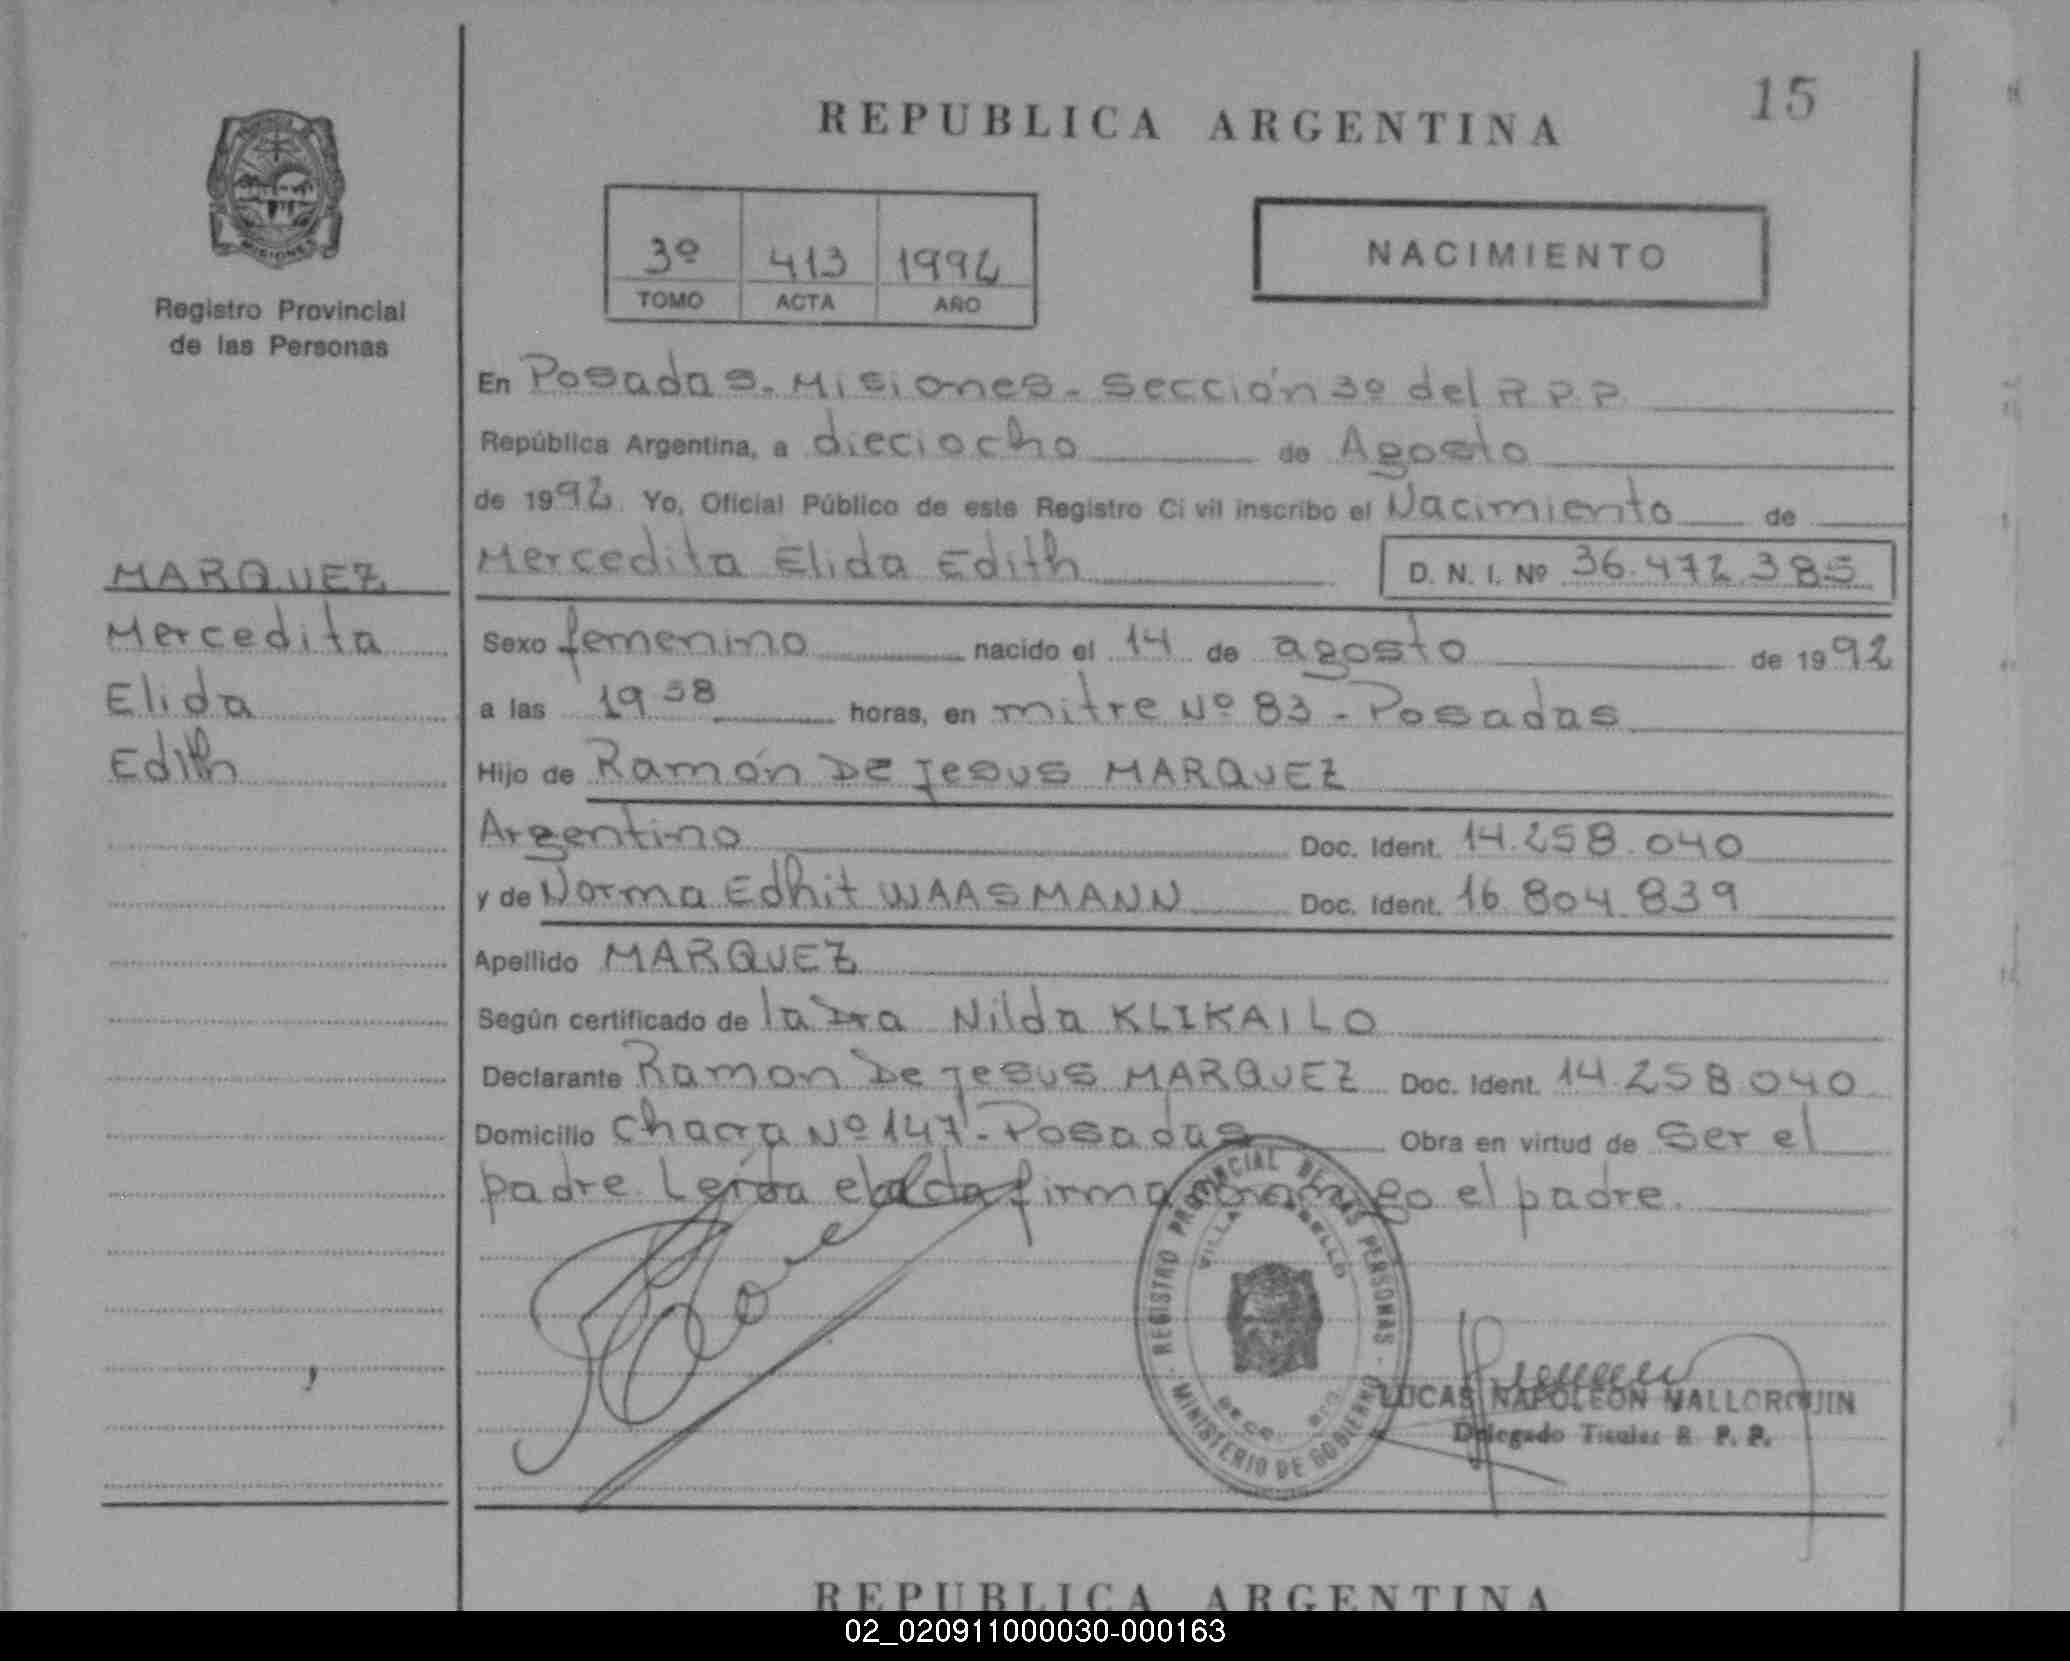 REPUBLICA ARGENTINA
15
MISIONES
Registro Provincial
de las Personas
3º 413 1992
TOMO ACTA AÑO
NACIMIENTO
En Posadas. Misiones - Sección 3º del R.P.P.
República Argentina, a dieciocho de Agosto
de 1992. Yo, Oficial Público de este Registro Civil inscribo el Nacimiento de
Mercedita Elida Edith D. N. I. Nº 36.472.385
MARQUEZ
Mercedita
Elida
Edith
Sexo femenino nacido el 14 de agosto de 1992
a las 19 38 horas, en mitre Nº 83 - Posadas
Hijo de Ramón De Jesus MARQUEZ
Argentino Doc. Ident. 14.258.040
y de Norma Edhit WAASMANN Doc. Ident. 16.804.839
Apellido MARQUEZ
Según certificado de la Dra Nilda KLIKAILO
Declarante Ramon De Jesus MARQUEZ Doc. Ident. 14.258.040
Domicilio Chacra Nº 147 - Posadas Obra en virtud de Ser el
padre. Leída el acta firma conmigo el padre.
REGISTRO PROVINCIAL DE LAS PERSONAS
VILLA
MINISTERIO DE GOBIERNO
LUCAS NAPOLEON MALLORQUIN
Delegado Titular R. P. P.
REPUBLICA ARGENTINA
02_020911000030-000163